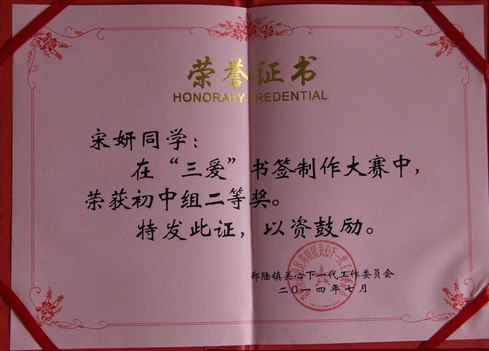 荣誉证书
HONORARY CREDENTIAL
宋妍同学：
在“三爱”书签制作大赛中，
荣获初中组二等奖。
特发此证，以资鼓励。
郑陆镇关心下一代工作委员会
二〇一四年七月